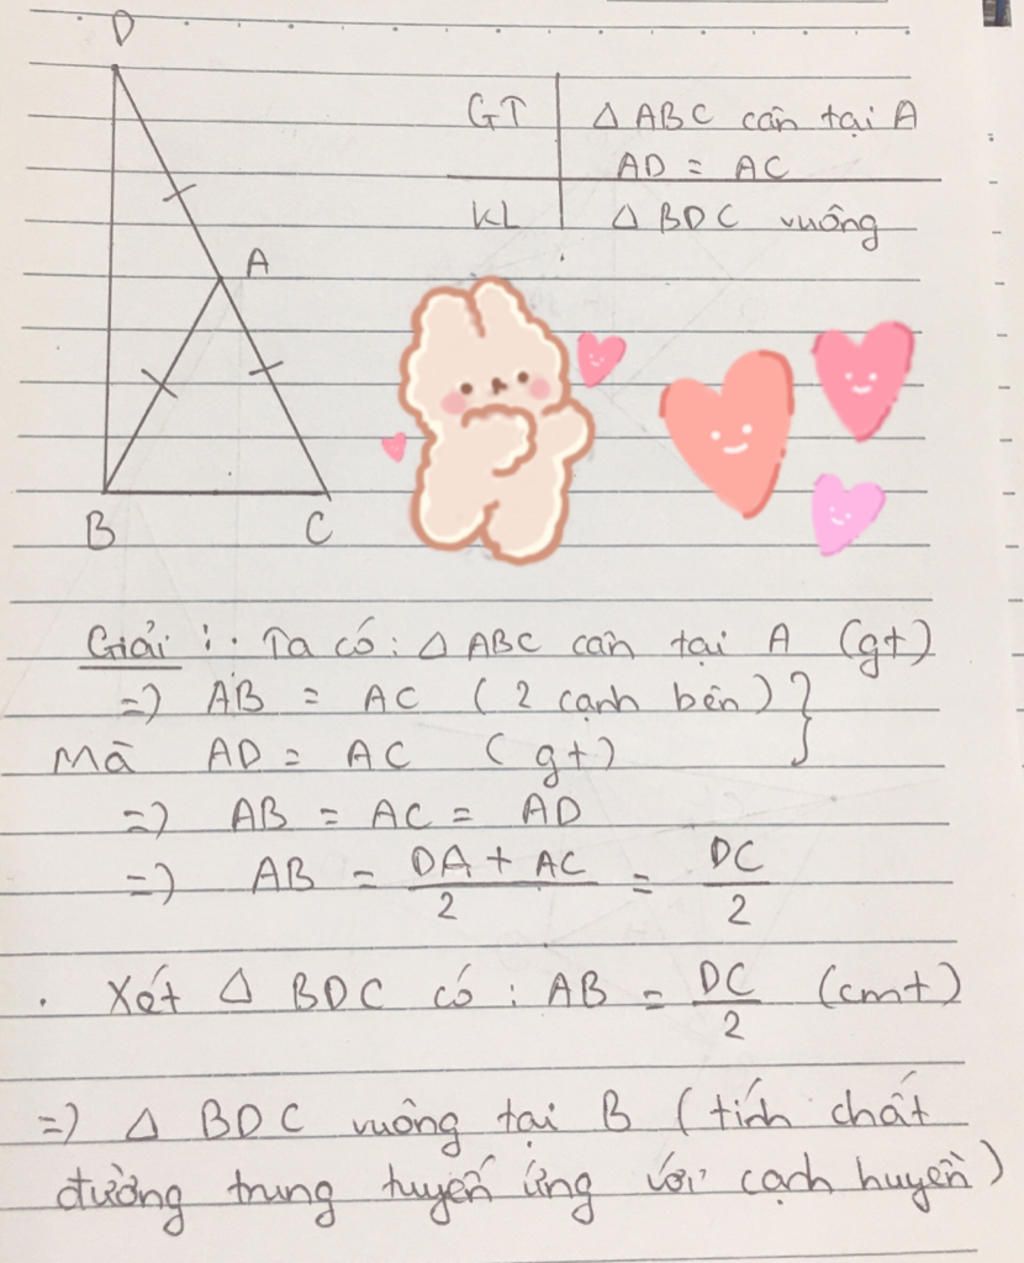 D
GT ∆ ABC cân tại A
AD = AC
KL ∆ BDC vuông
A
B C
Giải : . Ta có : ∆ ABC cân tại A (gt)
=) AB = AC ( 2 cạnh bên ) }
Mà AD = AC ( gt )
=) AB = AC = AD
=) AB = DA + AC / 2 = DC / 2
. Xét ∆ BDC có : AB = DC / 2 (cmt)
=) ∆ BDC vuông tại B ( tính chất
đường trung tuyến ứng với cạnh huyền )